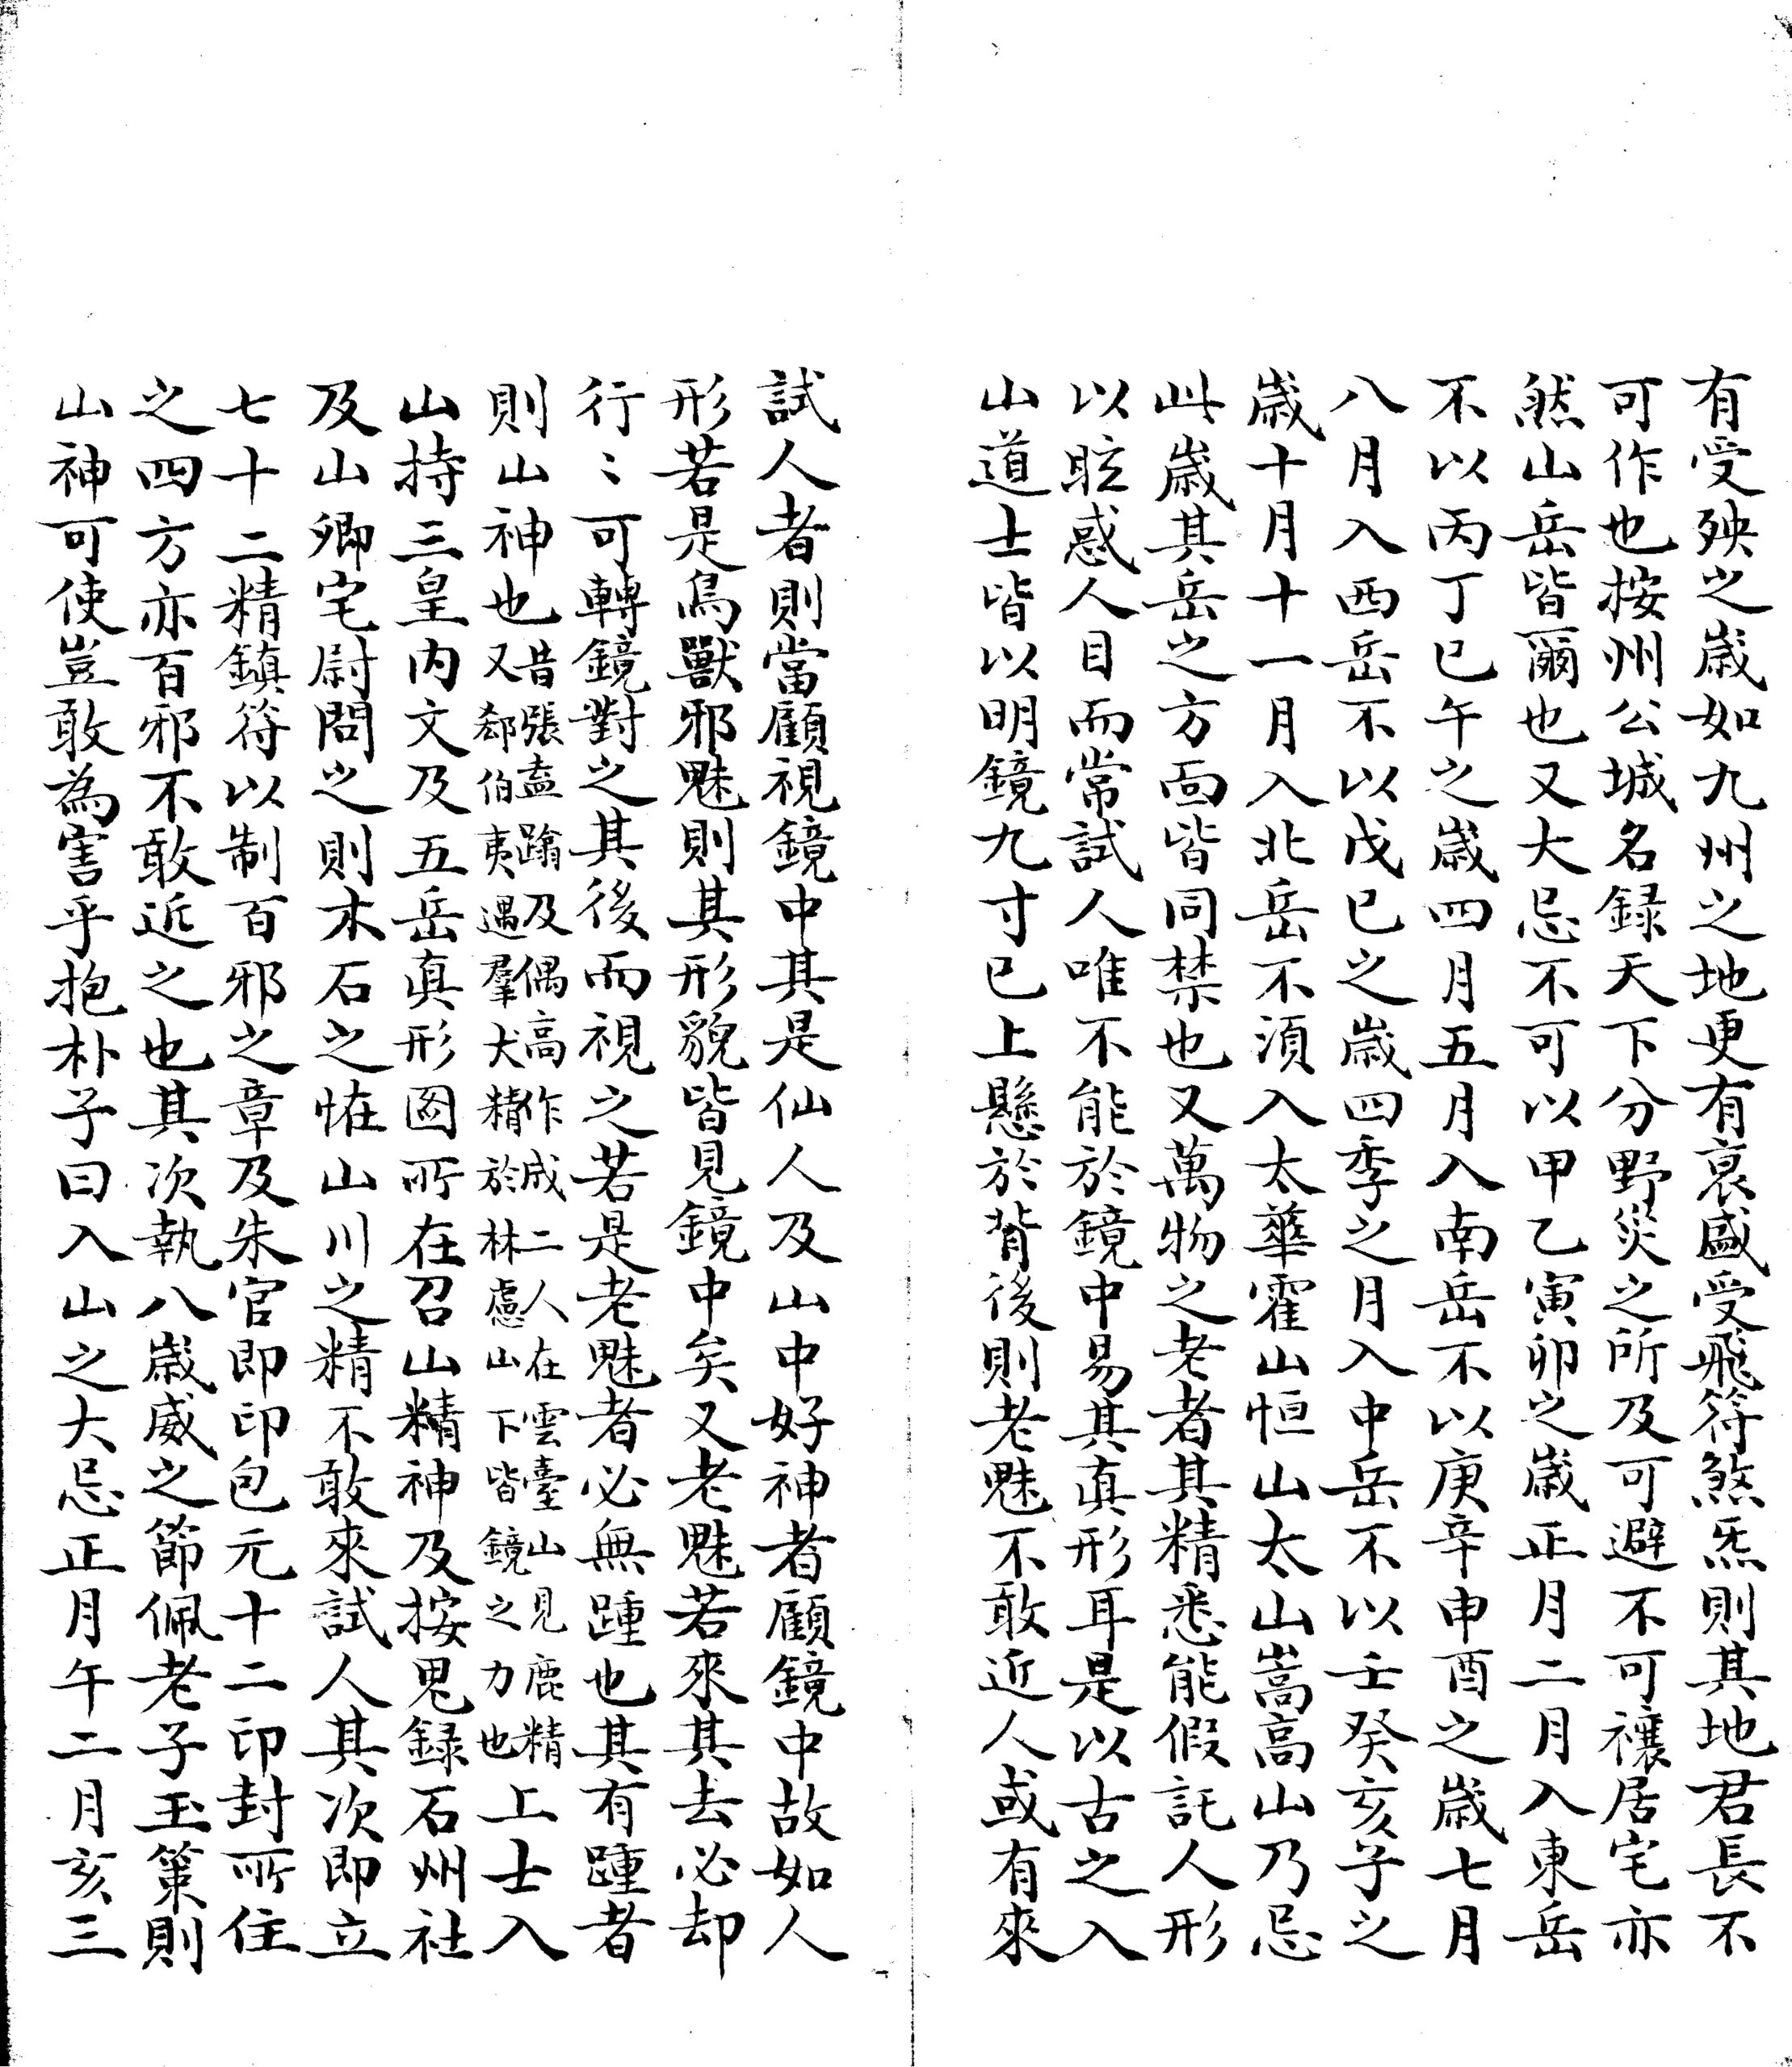 有受殃之歳如九州之地更有衰盛受飛符煞炁則其地君長不
可作也按州公城名録天下分野災之所及可避不可禳居宅亦
然山岳皆爾也又大忌不可以甲乙寅卯之歳正月二月入東岳
不以丙丁巳午之歳四月五月入南岳不以庚辛申酉之歳七月
八月入西岳不以戊巳之歳四季之月入中岳不以壬癸亥子之
歳十月十一月入北岳不須入太華霍山恒山太山嵩高山乃忌
此歳其岳之方面皆同禁也又萬物之老者其精悉能假託人形
以眩惑人目而常試人唯不能於鏡中易其真形耳是以古之入
山道士皆以明鏡九寸已上懸於背後則老魅不敢近人或有來
試人者則當顧視鏡中其是仙人及山中好神者顧鏡中故如人
形若是鳥獸邪魅則其形貌皆見鏡中矣又老魅若來其去必却
行〻可轉鏡對之其後而視之若是老魅者必無踵也其有踵者
則山神也昔張盍蹹及偶高作成二人在雲臺山見鹿精又郄伯夷遇羣犬精於林慮山下皆鏡之力也上士入
山持三皇内文及五岳真形圖所在召山精神及按鬼録石州社
及山卿宅尉問之則木石之恠山川之精不敢來試人其次即立
七十二精鎮符以制百邪之章及朱官即印包元十二印封所住
之四方亦百邪不敢近之也其次執八歳威之節佩老子玉策則
山神可使豈敢為害乎抱朴子曰入山之大忌正月午二月亥三